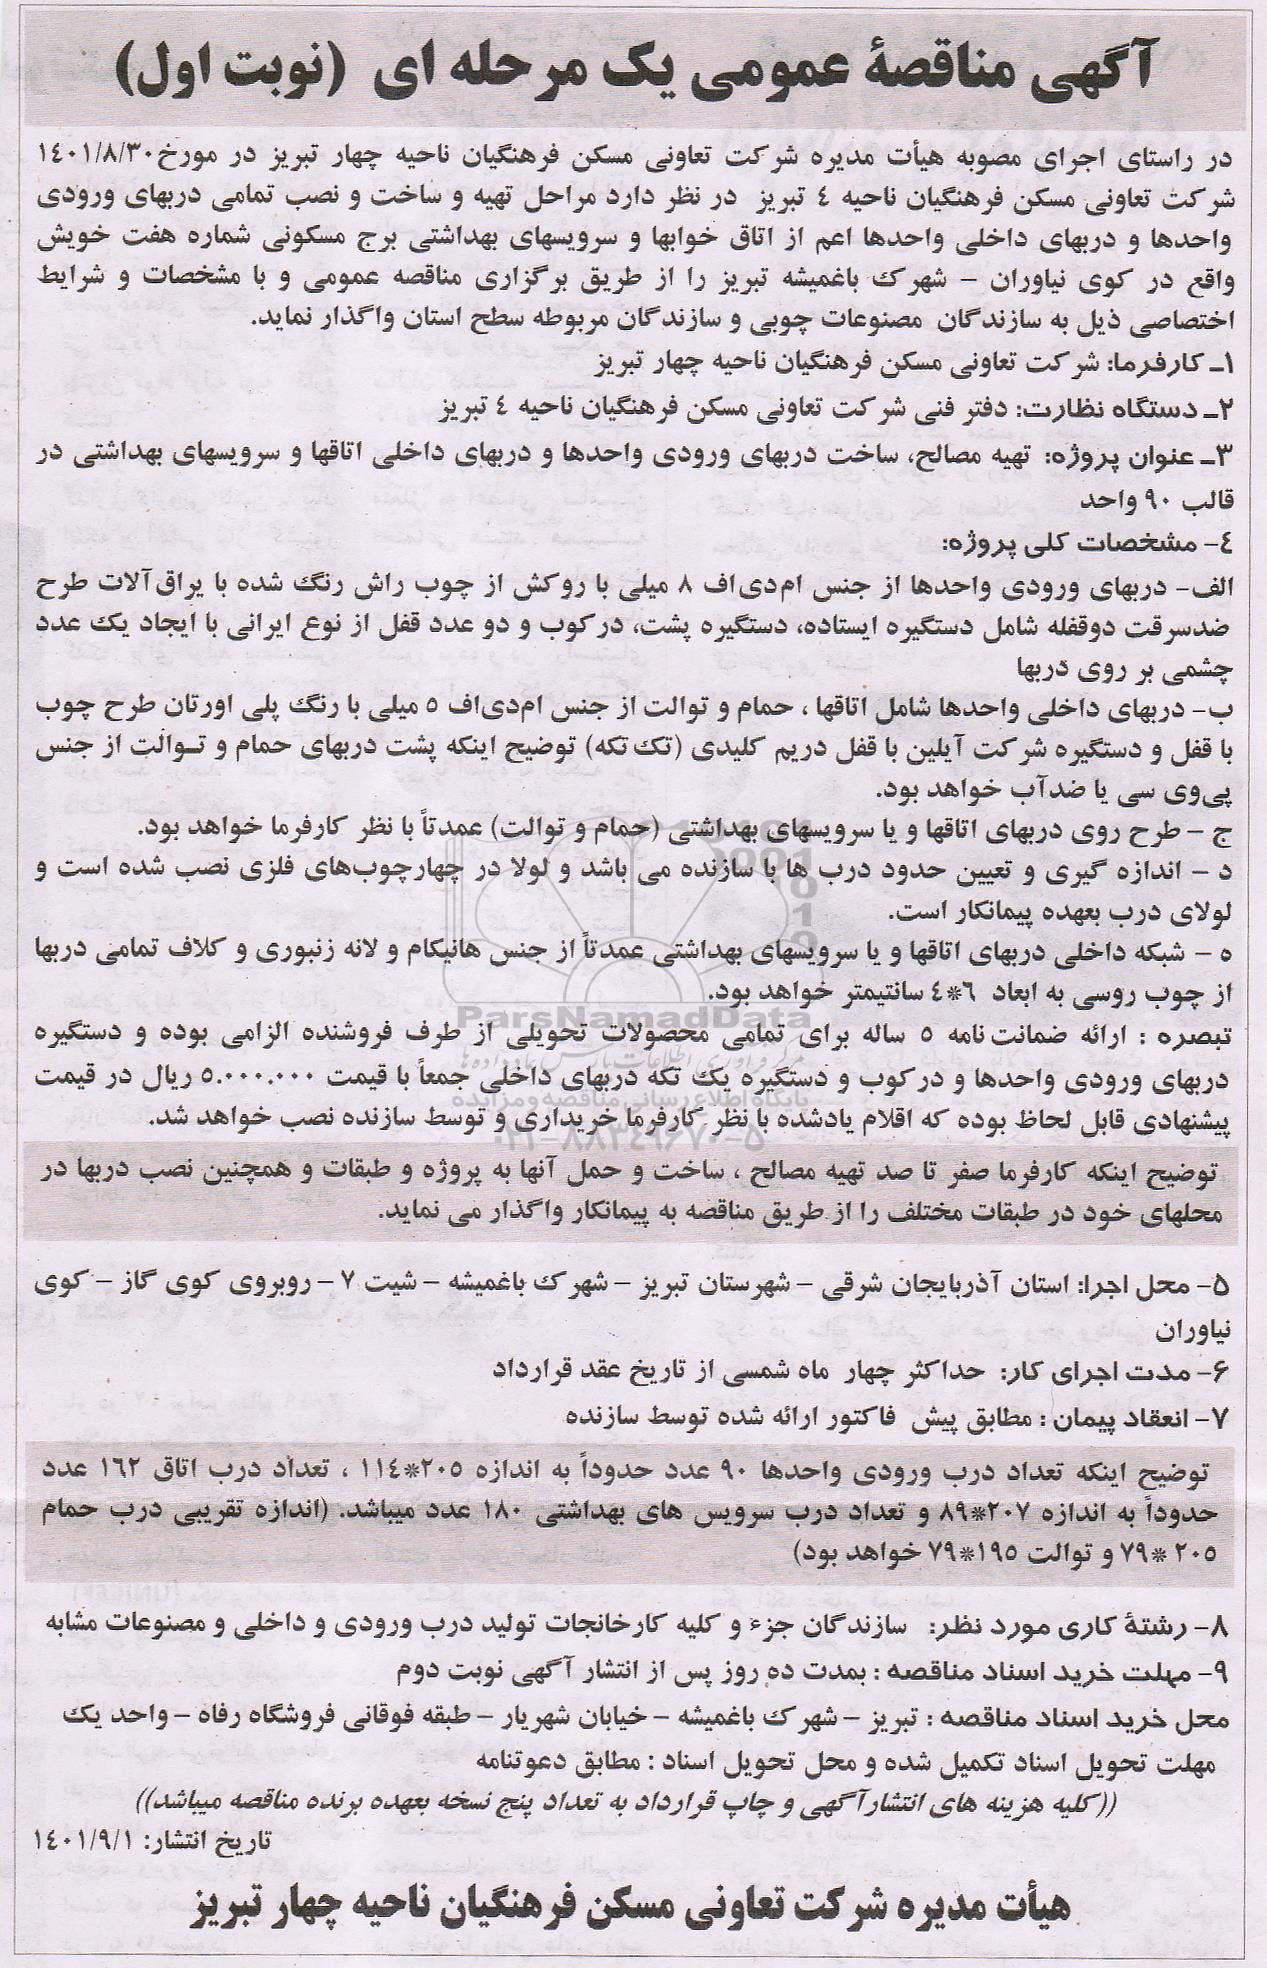 آگهی مناقصهٔ عمومی یک مرحله ای (نوبت اول)
در راستای اجرای مصوبه هیأت مدیره شرکت تعاونی مسکن فرهنگیان ناحیه چهار تبریز در مورخ ۱۴۰۱/۸/۳۰
شرکت تعاونی مسکن فرهنگیان ناحیه ۴ تبریز در نظر دارد مراحل تهیه و ساخت و نصب تمامی دربهای ورودی
واحدها و دربهای داخلی واحدها اعم از اتاق خوابها و سرویسهای بهداشتی برج مسکونی شماره هفت خویش
واقع در کوی نیاوران – شهرک باغمیشه تبریز را از طریق برگزاری مناقصه عمومی و با مشخصات و شرایط
اختصاصی ذیل به سازندگان مصنوعات چوبی و سازندگان مربوطه سطح استان واگذار نماید.
۱ـ کارفرما: شرکت تعاونی مسکن فرهنگیان ناحیه چهار تبریز
۲ـ دستگاه نظارت: دفتر فنی شرکت تعاونی مسکن فرهنگیان ناحیه ۴ تبریز
۳ـ عنوان پروژه: تهیه مصالح، ساخت دربهای ورودی واحدها و دربهای داخلی اتاقها و سرویسهای بهداشتی در
قالب ۹۰ واحد
۴- مشخصات کلی پروژه:
الف- دربهای ورودی واحدها از جنس ام‌دی‌اف ۸ میلی با روکش از چوب راش رنگ شده با یراق‌آلات طرح
ضدسرقت دوقفله شامل دستگیره ایستاده، دستگیره پشت، درکوب و دو عدد قفل از نوع ایرانی با ایجاد یک عدد
چشمی بر روی دربها
ب- دربهای داخلی واحدها شامل اتاقها ، حمام و توالت از جنس ام‌دی‌اف ۵ میلی با رنگ پلی اورتان طرح چوب
با قفل و دستگیره شرکت آیلین با قفل دریم کلیدی (تک‌تکه) توضیح اینکه پشت دربهای حمام و تـوالت از جنس
پی‌وی سی یا ضدآب خواهد بود.
ج – طرح روی دربهای اتاقها و یا سرویسهای بهداشتی (حمام و توالت) عمدتاً با نظر کارفرما خواهد بود.
د – اندازه گیری و تعیین حدود درب ها با سازنده می باشد و لولا در چهارچوب‌های فلزی نصب شده است و
لولای درب بعهده پیمانکار است.
ه – شبکه داخلی دربهای اتاقها و یا سرویسهای بهداشتی عمدتاً از جنس هانیکام و لانه زنبوری و کلاف تمامی دربها
از چوب روسی به ابعاد ۶*۴ سانتیمتر خواهد بود.
ParsNamadData
تبصره : ارائه ضمانت‌نامه ۵ ساله برای تمامی محصولات تحویلی از طرف فروشنده الزامی بوده و دستگیره
دربهای ورودی واحدها و درکوب و دستگیره یک تکه دربهای داخلی جمعاً با قیمت ۵.۰۰۰.۰۰۰ ریال در قیمت
پایگاه اطلاع رسانی مناقصه و مزایده
پیشنهادی قابل لحاظ بوده که اقلام یادشده با نظر کارفرما خریداری و توسط سازنده نصب خواهد شد.
۰۲۱-۸۸۳۴۹۶۷۰-۵
توضیح اینکه کارفرما صفر تا صد تهیه مصالح ، ساخت و حمل آنها به پروژه و طبقات و همچنین نصب دربها در
محلهای خود در طبقات مختلف را از طریق مناقصه به پیمانکار واگذار می نماید.
۵- محل اجرا: استان آذربایجان شرقی – شهرستان تبریز – شهرک باغمیشه – شیت ۷ – روبروی کوی گاز – کوی
نیاوران
۶- مدت اجرای کار: حداکثر چهار ماه شمسی از تاریخ عقد قرارداد
۷- انعقاد پیمان : مطابق پیش فاکتور ارائه شده توسط سازنده
توضیح اینکه تعداد درب ورودی واحدها ۹۰ عدد حدوداً به اندازه ۲۰۵*۱۱۴ ، تعداد درب اتاق ۱۶۲ عدد
حدوداً به اندازه ۲۰۷*۸۹ و تعداد درب سرویس های بهداشتی ۱۸۰ عدد میباشد. (اندازه تقریبی درب حمام
۲۰۵ *۷۹ و توالت ۱۹۵*۷۹ خواهد بود)
۸- رشتهٔ کاری مورد نظر: سازندگان جزء و کلیه کارخانجات تولید درب ورودی و داخلی و مصنوعات مشابه
۹- مهلت خرید اسناد مناقصه : بمدت ده روز پس از انتشار آگهی نوبت دوم
محل خرید اسناد مناقصه : تبریز – شهرک باغمیشه – خیابان شهریار – طبقه فوقانی فروشگاه رفاه – واحد یک
مهلت تحویل اسناد تکمیل شده و محل تحویل اسناد : مطابق دعوتنامه
((کلیه هزینه های انتشارآگهی و چاپ قرارداد به تعداد پنج نسخه بعهده برنده مناقصه میباشد))
تاریخ انتشار: ۱۴۰۱/۹/۱
هیأت مدیره شرکت تعاونی مسکن فرهنگیان ناحیه چهار تبریز